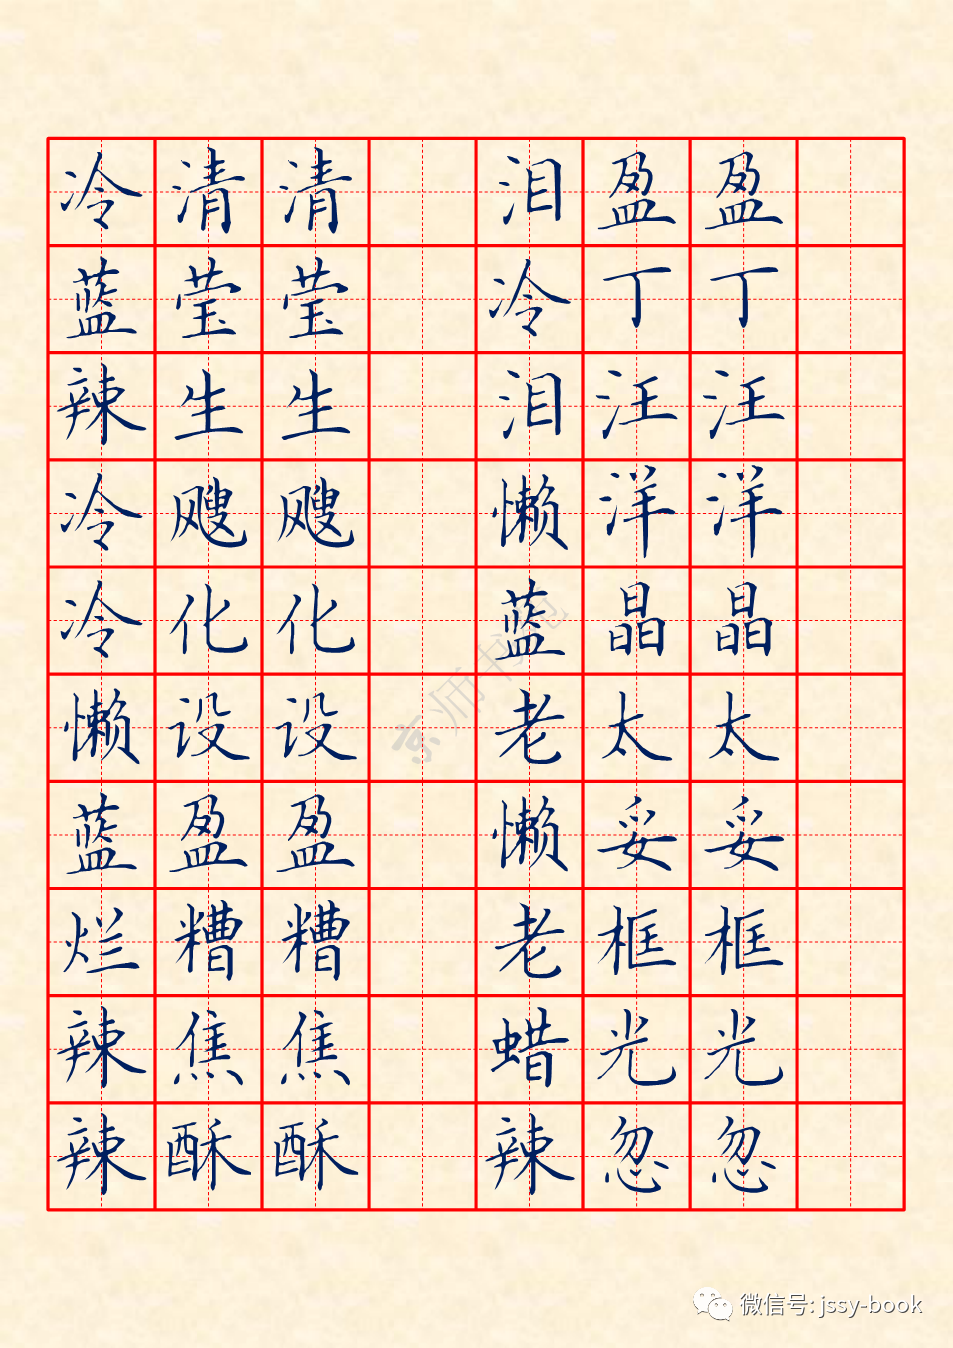 冷清清 泪盈盈
蓝莹莹 冷丁丁
辣生生 泪汪汪
冷飕飕 懒洋洋
冷化化 蓝晶晶
懒设设 老太太
蓝盈盈 懒妥妥
烂糟糟 老框框
辣焦焦 蜡光光
辣酥酥 辣忽忽
京师书苑
微信号: jssy-book